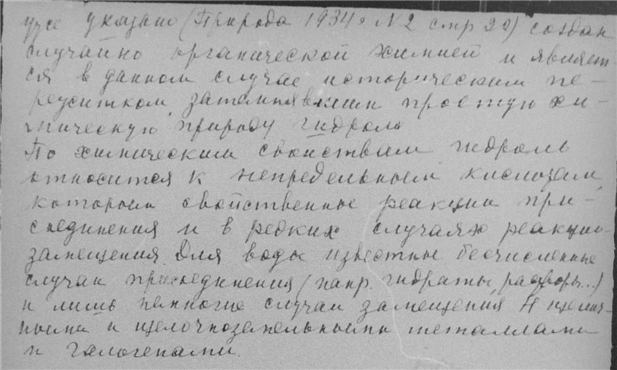 уже указано (Природа 1934 г. №2 стр 20) создан
случайно органической химией и являет-
ся в данном случае историческим пе-
режитком затемнявшим простую хи-
мическую природу гидроль
По химическим свойствам гидроль
относится к непредельным кислотам,
которым свойственные реакции при-
соединения и в редких случаях реакции
замещения. Для воды известны бесчисленные
случаи присоединения (напр. гидраты, растворы...)
и лишь немногие случаи замещения H щелоч-
ными и щелочноземельными металлами
и галогенами.